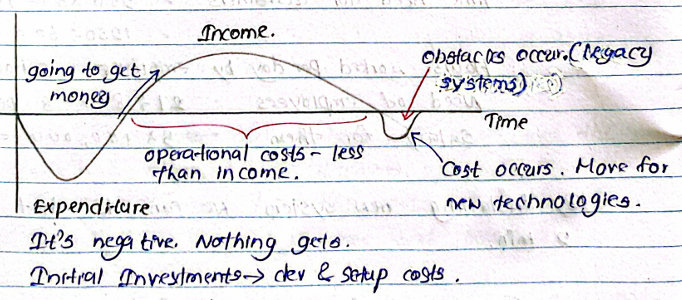 Income.
going to get
money
obstacles occur. (legacy
systems)
Time
operational costs - less
than income.
Cost occurs. Move for
new technologies.
Expenditure
It's negative. Nothing gets.
Initial Investments → dev & setup costs.